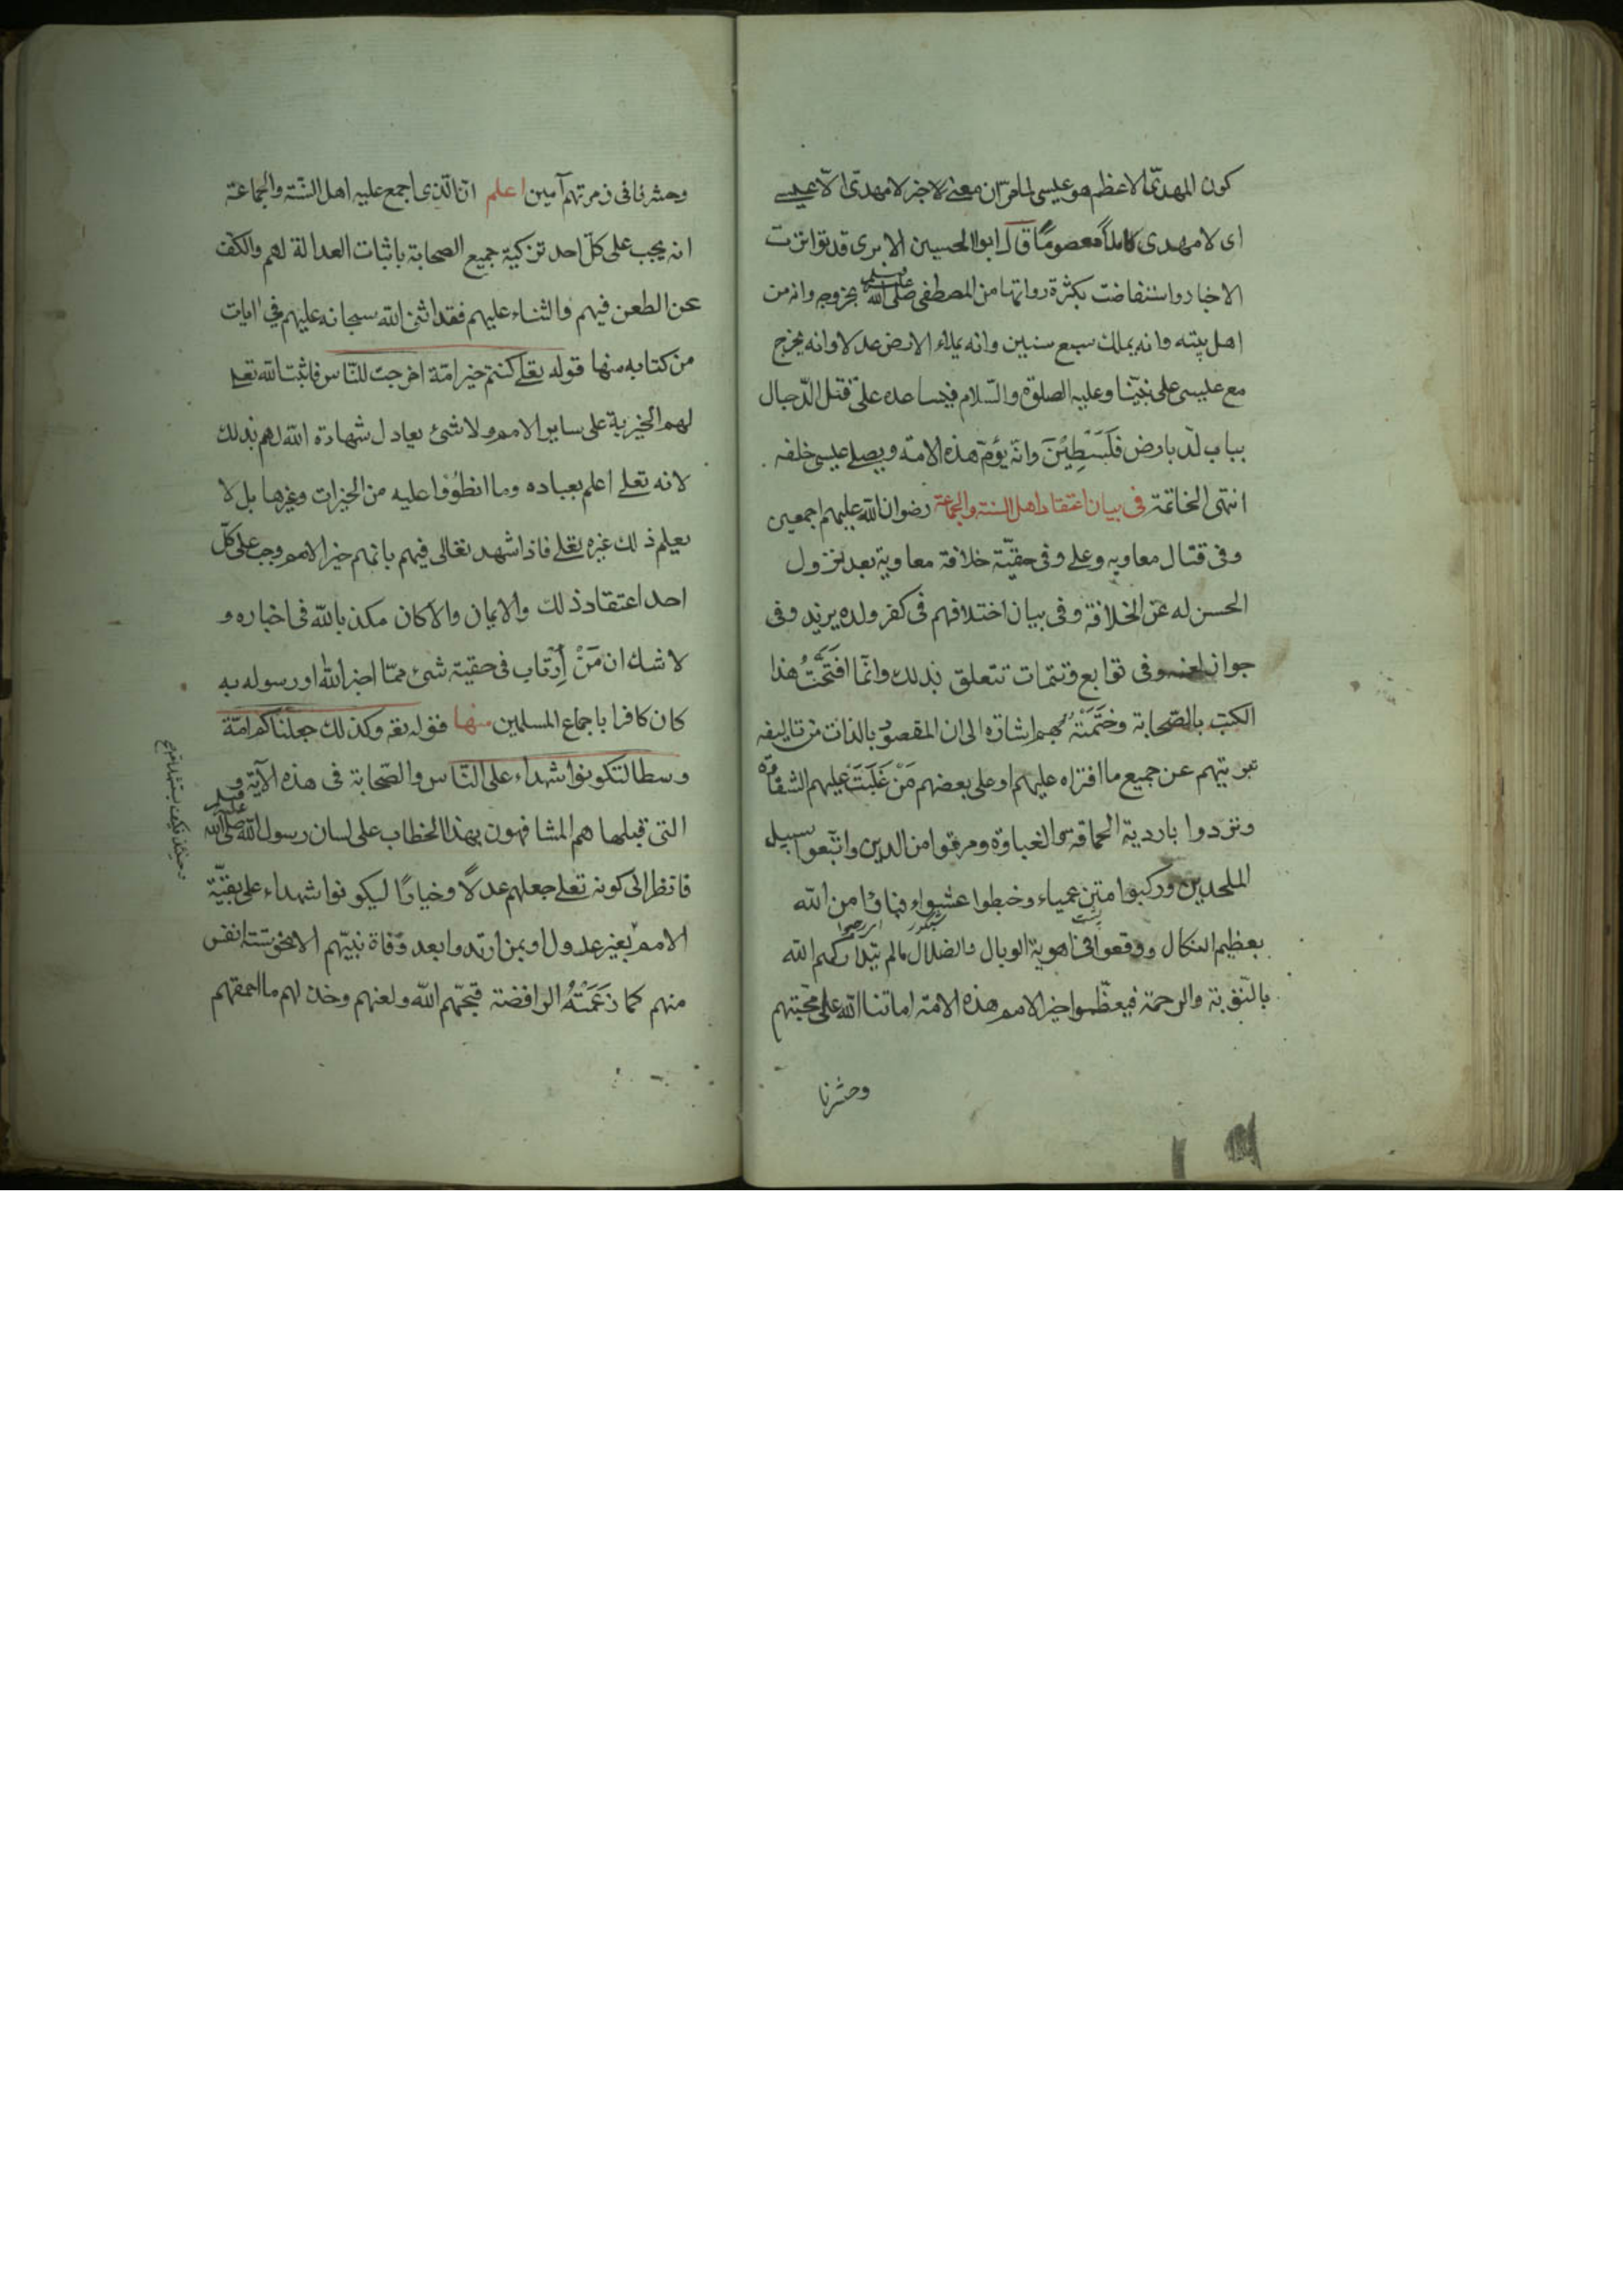 كون المهدى الاعظم هو عيسى لما مر ان معنى لا خبر لا مهدى الا عيسے
اى لا مهدى كاملا معصوما قال ابو الحسين الابرى قد تواترت
الاخبار واستفاضت بكثرة رواتها من المصطفى صلى الله عليه وسلم بخروجه وانه من
اهل بيته وانه يملك سبع سنين وانه يملاء الارض عدلا وانه يخرج
مع عليسى على نبينا وعليه الصلوة والسلام فيساعده على قتل الدجال
بباب لد بارض فَلَسْطِيْنَ وانه يؤم هذه الامة ويصلے عيسى خلفه
انتهى الخاتمة فى بيان اعتقاد اهل السنة والجماعة رضوان الله عليهم اجمعين
وفى قتال معاويه وعلى وفى حقيّة خلافة معاوية بعد نزول
الحسن له عن الخلافة وفى بيان اختلافهم فى كفر ولده يزيد وفى
جواز لعنه وفى توابع وتتمات تتعلق بذلك وانّما افْتَتَحْتُ هذا
الكتب بالصّحابة وخَتَمْتُهُ بهم اشارة الى ان المقصود بالذات من تاليفه
تبريتهم عن جميع ما افتراه عليهم او على بعضهم مَنْ غَلَبَتْ عليهم الشقاوة
وتردوا باردية الحماقة والغباوة ومرقوا من الدين واتبعوا سبيل
الملحدين وركبوا متن عمياء وخبطوا عشواء فباؤا من الله
بعظيم النكال ووقعوا فى اهوية الوبال والضلال ما لم يتداركهم الله
بالتّوبة والرحمة فيعظّموا خير الامم هذه الامّة اماتنا الله على محبّتهم
وحشرنا
وحشرنا فى زمرتهم آمين اعلم ان الّذى اجمع عليه اهل السّنة والجماعة
انه يجب على كلّ احد تزكية جميع الصحابة باثبات العدالة لهم والكفّ
عن الطعن فيهم والثناء عليهم فقد اثنى الله سبحانه عليهم في ايات
من كتابه منها قوله تعلے كنتم خير امّة اخرجت للنّاس فاثبت الله تعلے
لهم الخيرية على ساير الامم ولا شئ يعادل شهادة الله لهم بذلك
لانه تعلے اعلم بعباده وما انطوُوا عليه من الخيرات وغيرها بل لا
يعلم ذلك غيره تعلے فاذا شهد تعالى فيهم بانهم خير الامم وجب على كلّ
احد اعتقاد ذلك والايمان والا كان مكذبا لله فى اخباره و
لا شك ان مَنْ اِرْتاب فى حقية شئ ممّا اخبر الله او رسوله به
كان كافرا باجماع المسلمين منها فقوله تعه وكذلك جعلناكم امّة
وسطا لتكونوا شهداء على النّاس والصّحابة فى هذه الآية و
التى قبلها هم المشافهون بهذا الخطاب على لسان رسول الله صلى الله عليه وسلم
فانظر الى كونه تعلے جعلهم عدلًا وخيارًا ليكونوا شهداء على بقيّة
الامم بغير عدول او بمن ارتدوا بعد وفاة نبيّهم الا نحو ستة انفس
منهم كما زَعَمَتْهُ الرافضة قبحّهم الله ولعنهم وخذلهم ما احمقهم